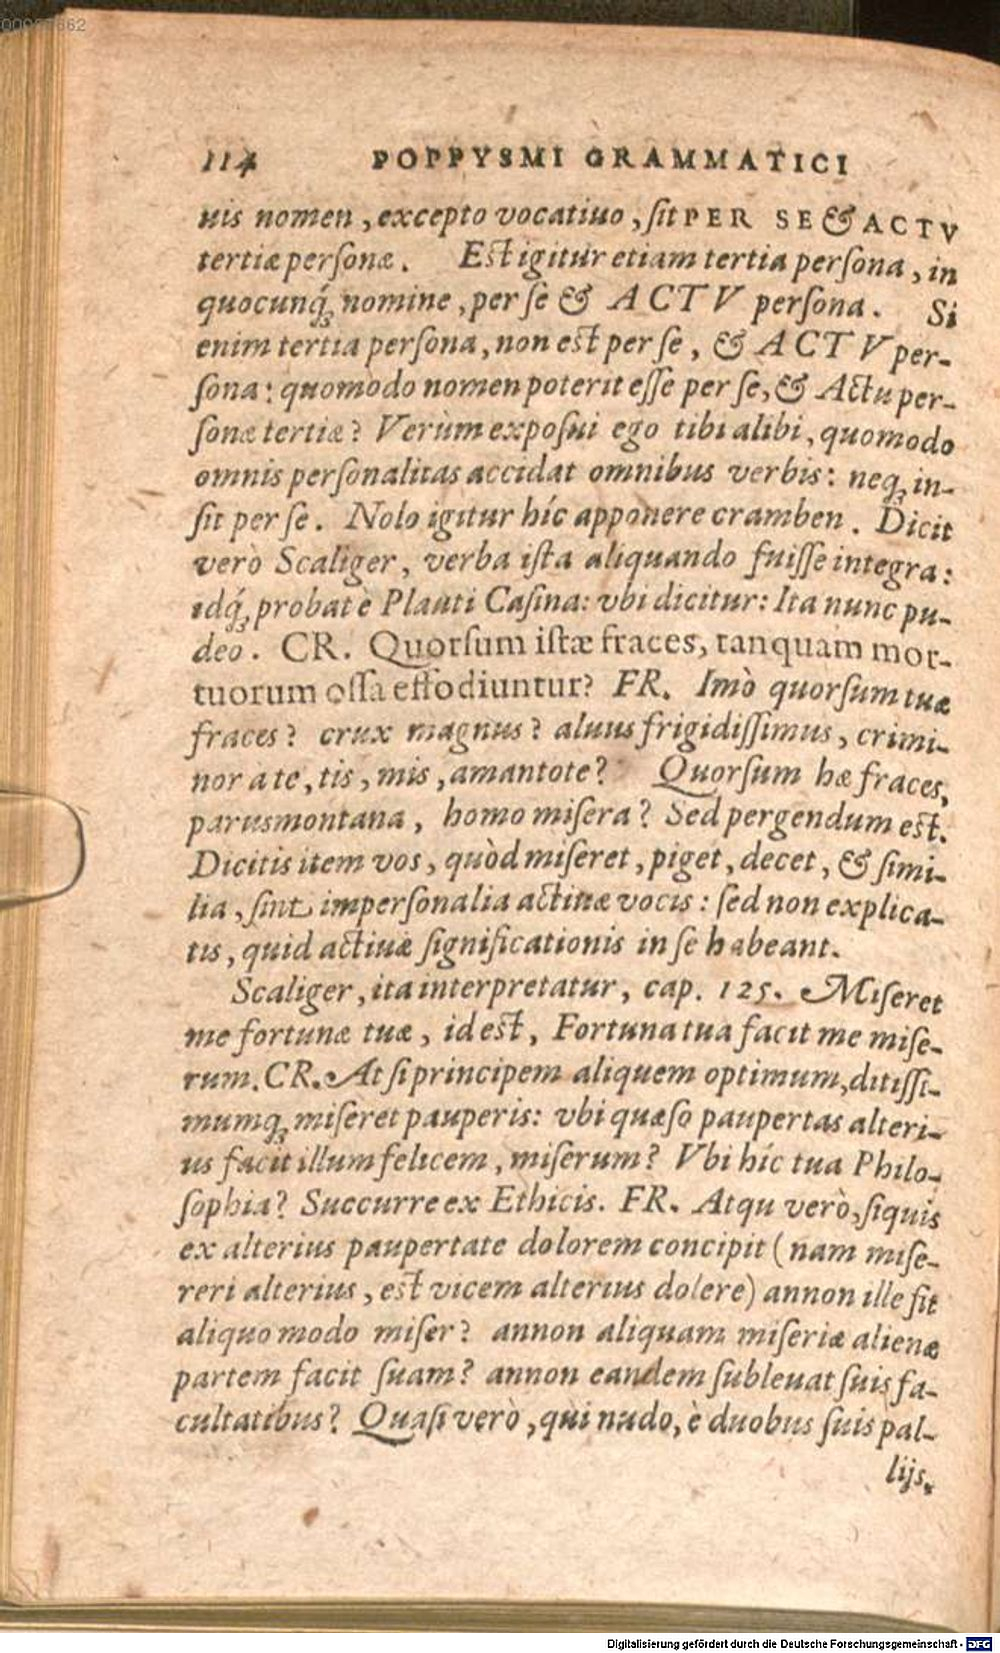 114 POPPYSMI GRAMMATICI
uis nomen, excepto vocatiuo, ſit PER SE & ACTV
tertiæ perſonæ. Eſt igitur etiam tertia perſona, in
quocunq́; nomine, per ſè & ACTV perſona. Si
enim tertia perſona, non eſt per ſe, & ACTV per-
ſona: quomodo nomen poterit eſſe per ſe, & Actu per-
ſonæ tertiæ? Verùm expoſui ego tibi alibi, quomodo
omnis perſonalitas accidat omnibus verbis: neq; in-
ſit per ſe. Nolo igitur hîc apponere cramben. Dicit
verò Scaliger, verba iſta aliquando fuiſſe integra:
idq́; probat è Plauti Caſina: vbi dicitur: Ita nunc pu-
deo. CR. Quorſum iſtæ fraces, tanquam mor-
tuorum oſſa effodiuntur? FR. Imò quorſum tuæ
fraces? crux magnus? aluus frigidiſſimus, crimi-
nor a te, tis, mis, amantote? Quorſum hæ fraces,
parusmontana, homo miſera? Sed pergendum eſt.
Dicitis item vos, quòd miſeret, piget, decet, & ſimi-
lia, ſint imperſonalia actiuæ vocis: ſed non explica-
tis, quid actiuæ ſignificationis in ſe habeant.
Scaliger, ita interpretatur, cap. 125. Miſeret
me fortunæ tuæ, id eſt, Fortuna tua facit me miſe-
rum. CR. At ſi principem aliquem optimum, ditiſſi-
mumq; miſeret pauperis: vbi quæſo paupertas alteri-
us facit illum felicem, miſerum? Vbi hîc tua Philo-
ſophia? Succurre ex Ethicis. FR. Atqu verò, ſiquis
ex alterius paupertate dolorem concipit (nam miſe-
reri alterius, eſt vicem alterius dolere) annon ille fit
aliquo modo miſer? annon aliquam miſeriæ alienæ
partem facit ſuam? annon eandem ſubleuat ſuis fa-
cultatibus? Quaſi verò, qui nudo, è duobus ſuis pal-
lijs,
Digitalisierung gefördert durch die Deutsche Forschungsgemeinschaft - DFG